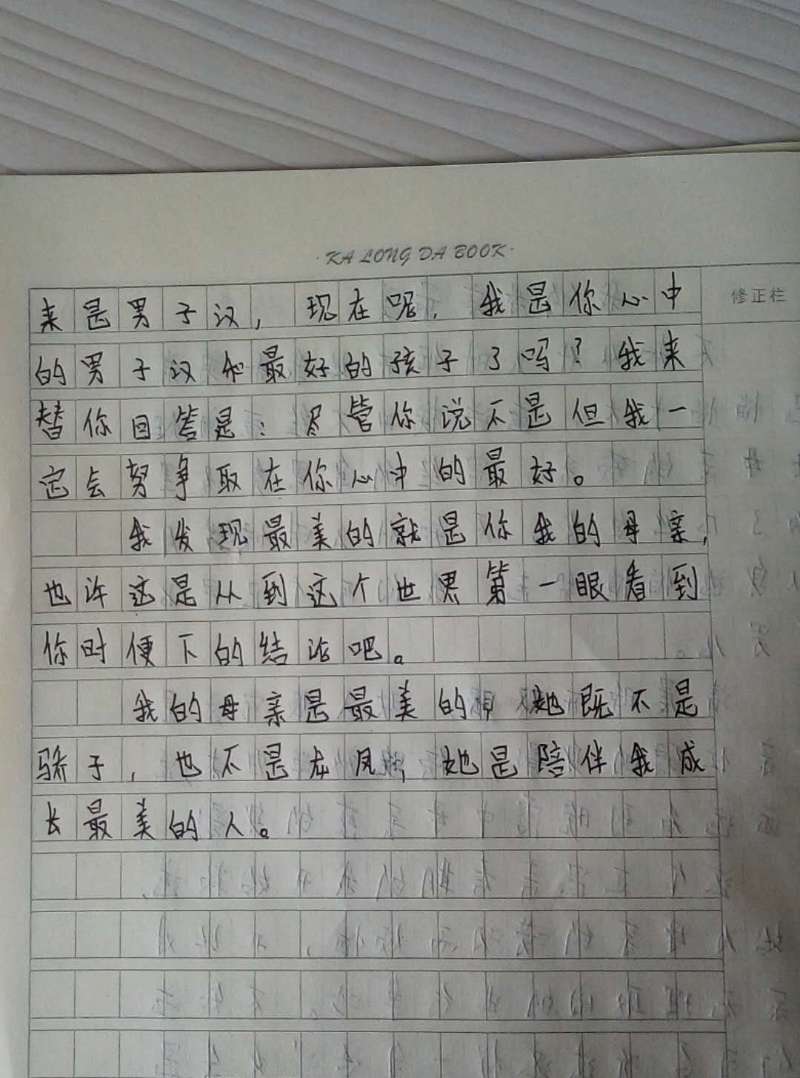 ·KA LONG DA BOOK·
修正栏
来是男子汉，现在呢，我是你心中
的男子汉和最好的孩子了吗？我来
替你回答是：尽管你说不是但我一
定会努争取在你心中的最好。
我发现最美的就是你我的母亲，
也许这是从到这个世界第一眼看到
你时便下的结论吧。
我的母亲是最美的，她既不是
骄子，也不是龙凤，她是陪伴我成
长最美的人。